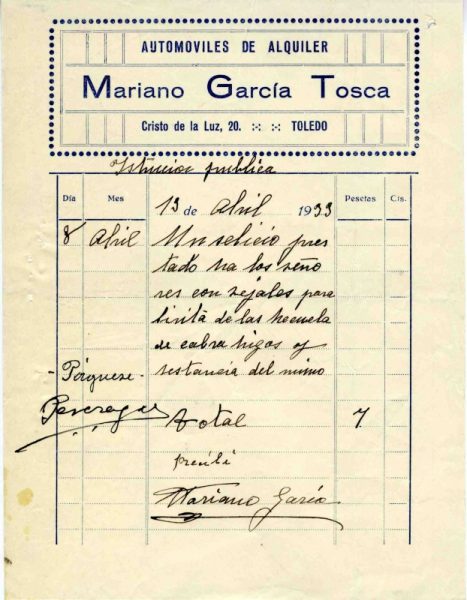 AUTOMOVILES DE ALQUILER
Mariano García Tosca
Cristo de la Luz, 20. :-: :-: TOLEDO
Istrucion publica
Día Mes Pesetas Cts.
13 de abril 1933
8 Abril Un selicio pres
tado ha los seño
res con sejales para
bisita de las hecuela
de cabra higos y
- Páguese - restancia del mimo
total 7
recibi
Mariano García